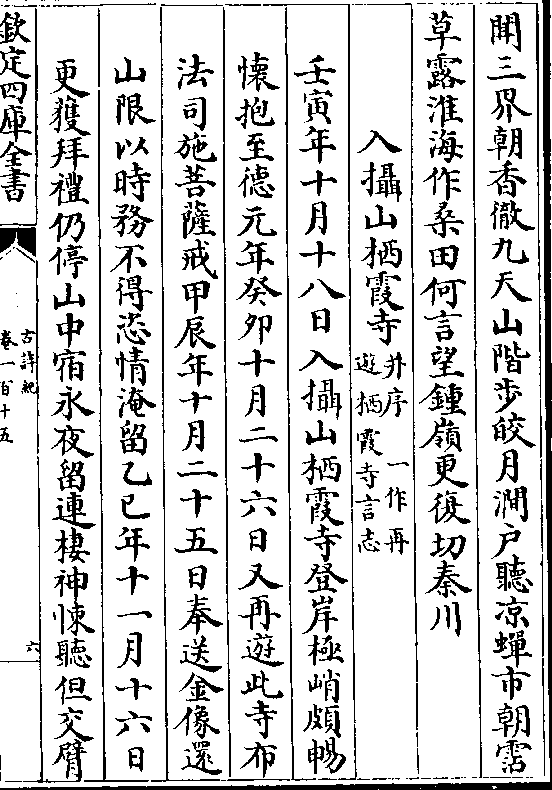 聞三界朝香徹九天山階步皎月澗户聽凉蟬市朝霑
草露淮海作桑田何言望鍾嶺更復切秦川
入攝山栖霞寺并序一作再遊栖霞寺言志
壬寅年十月十八日入攝山栖霞寺登岸極峭頗暢
懷抱至德元年癸卯十月二十六日又再遊此寺布
法司施菩薩戒甲辰年十月二十五日奉送金像還
山限以時務不得恣情淹留乙巳年十一月十六日
更獲拜禮仍停山中宿永夜留連棲神悚聽但交臂
欽定四庫全書
古詩紀
卷一百十五
六